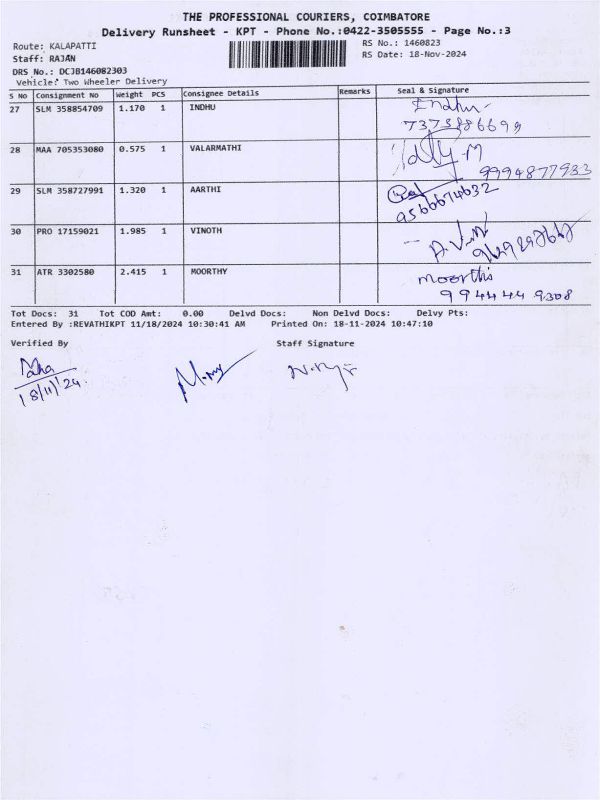 THE PROFESSIONAL COURIERS, COIMBATORE
Delivery Runsheet - KPT - Phone No.:0422-3505555 - Page No.:3
Route: KALAPATTI
RS No.: 1460823
Staff: RAJAN
RS Date: 18-Nov-2024
DRS No.: DCJB146082303
Vehicle: Two Wheeler Delivery
S No Consignment No Weight PCS Consignee Details Remarks Seal & Signature
27 SLM 358854709 1.170 1 INDHU Indhu
7373886699
28 MAA 705353080 0.575 1 VALARMATHI
9994877933
29 SLM 358727991 1.320 1 AARTHI
9566674632
30 PRO 17159021 1.985 1 VINOTH
31 ATR 3302580 2.415 1 MOORTHY moorthi
994444 9308
Tot Docs: 31 Tot COD Amt: 0.00 Delvd Docs: Non Delvd Docs: Delvy Pts:
Entered By :REVATHIKPT 11/18/2024 10:30:41 AM Printed On: 18-11-2024 10:47:10
Verified By Staff Signature
18/11/24.